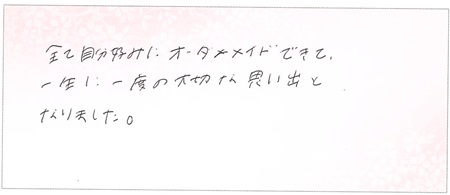 全て自分好みに オーダーメイドできて、
一生に一度の大切な思い出と
なりました。